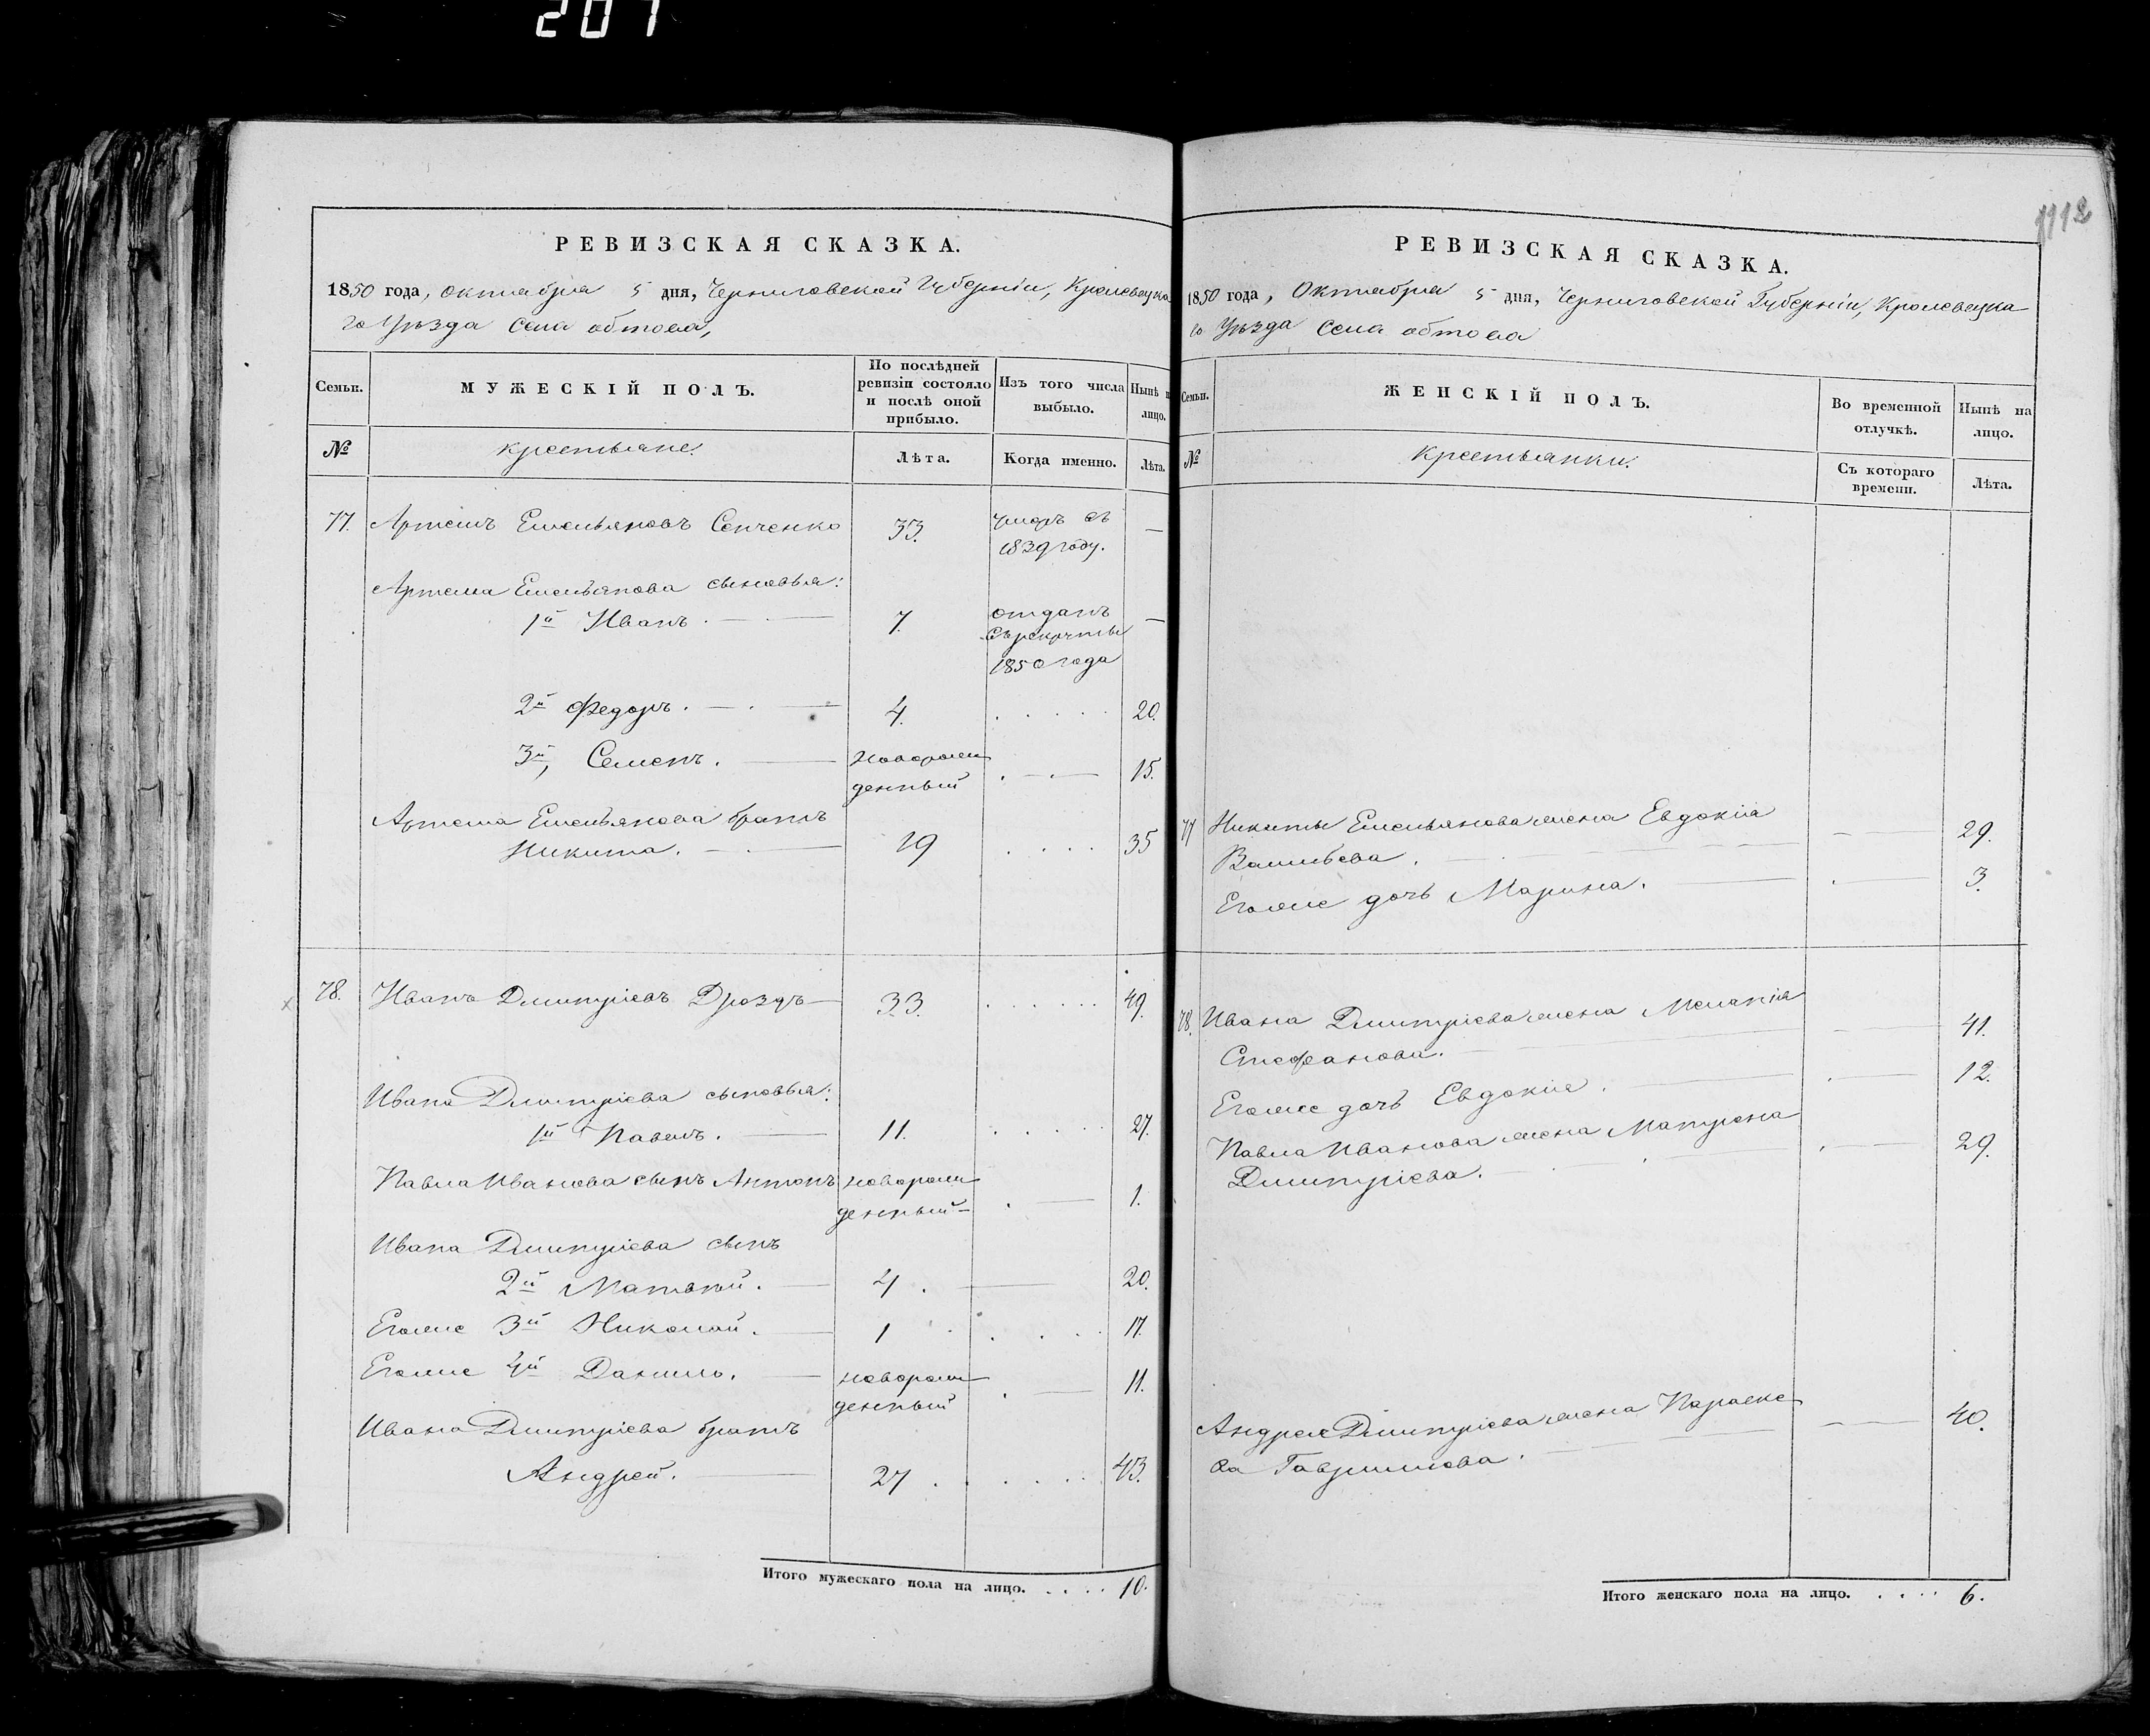 207
РЕВИЗСКАЯ СКАЗКА.
1850 года, октября 5 дня, Черниговской Губерніи, Кролевецка
го Уѣзда Села обтова,
Семьи.
МУЖЕСКІЙ ПОЛЪ.
По послѣдней ревизіи состояло и послѣ оной прибыло.
Изъ того числа выбыло.
Нынѣ н лицо.
№
крестьяне.
Лѣта.
Когда именно.
Лѣта.
77. Артемъ Емельяновъ Сенченко 33. умеръ въ —
1839 году.
Артема Емельянова сыновья:
1й Иванъ. 7. отданъ —
въ рекруты
1850 года
2й Федоръ. 4. 20.
3й, Семенъ. новорож 15.
денный
Артема Емельянова братъ
Никита. 19 35
78. Иванъ Дмитріевъ Дроздъ 33. 49.
Ивана Дмитріева сыновья:
1й Павелъ. 11. 27.
Павла Иванова сынъ Антонъ новорож 1.
денный
Ивана Дмитріева сынъ
2й Матвѣй. 4. 20.
Егоже 3й Николай. 1 17.
Егоже 4й Данило. новорож 11.
денный
Ивана Дмитріева братъ
Андрей. 27. 43.
Итого мужескаго пола на лицо. . . . . 10.
1112
РЕВИЗСКАЯ СКАЗКА.
1850 года, Октября 5 дня, Черниговской Губерніи, Кролевецка
го Уѣзда Села обтова
Семьи.
ЖЕНСКІЙ ПОЛЪ.
Во временной отлучкѣ.
Нынѣ на лицо.
№
Крестьянки.
Съ котораго времени.
Лѣта.
77 Никиты Емельянова жена Евдокія — 29.
Васильева.
Егоже дочь Марина. 3.
78. Ивана Дмитріева жена Меланія — 41.
Стефанова.
Егоже дочь Евдокія. 12.
Павла Иванова жена Матрона 29.
Дмитріева.
Андрея Дмитріева жена Параске 40.
ва Гаврилова.
Итого женскаго пола на лицо. . . . . 6.